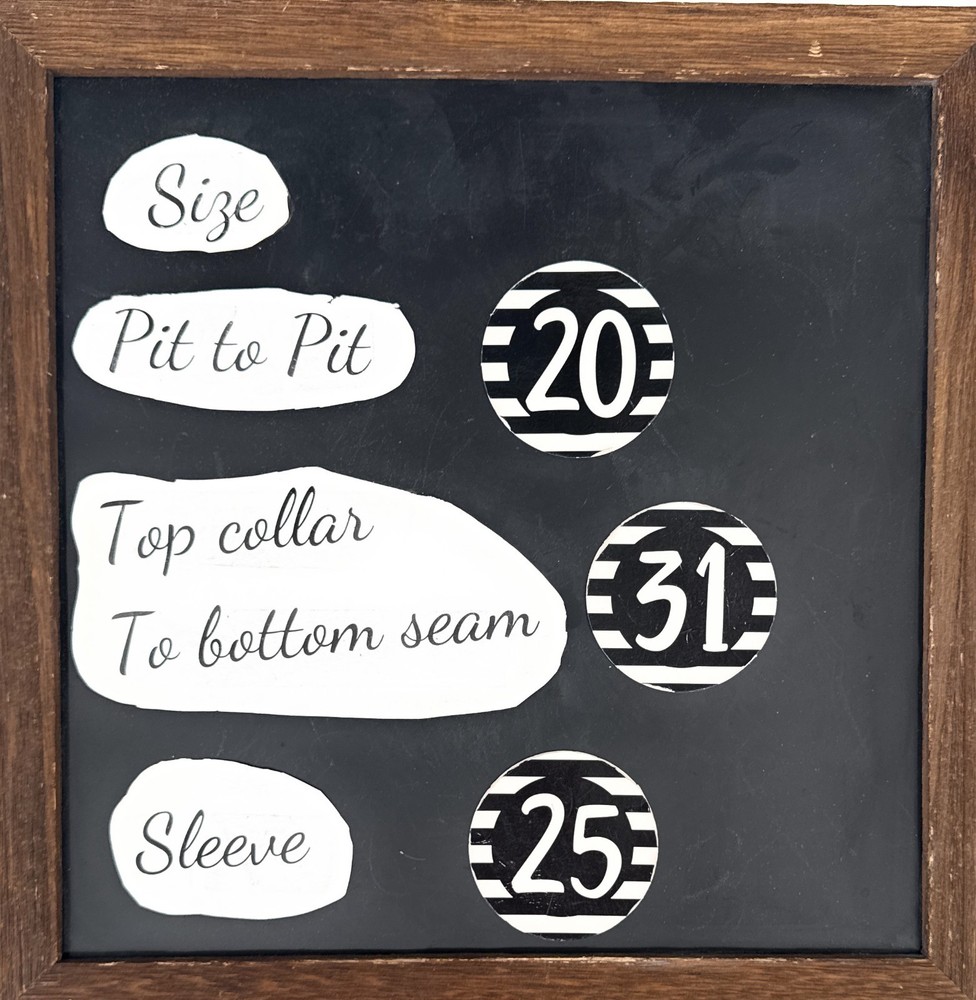 Size
Pit to Pit 20
Top collar
To bottom seam 31
Sleeve 25